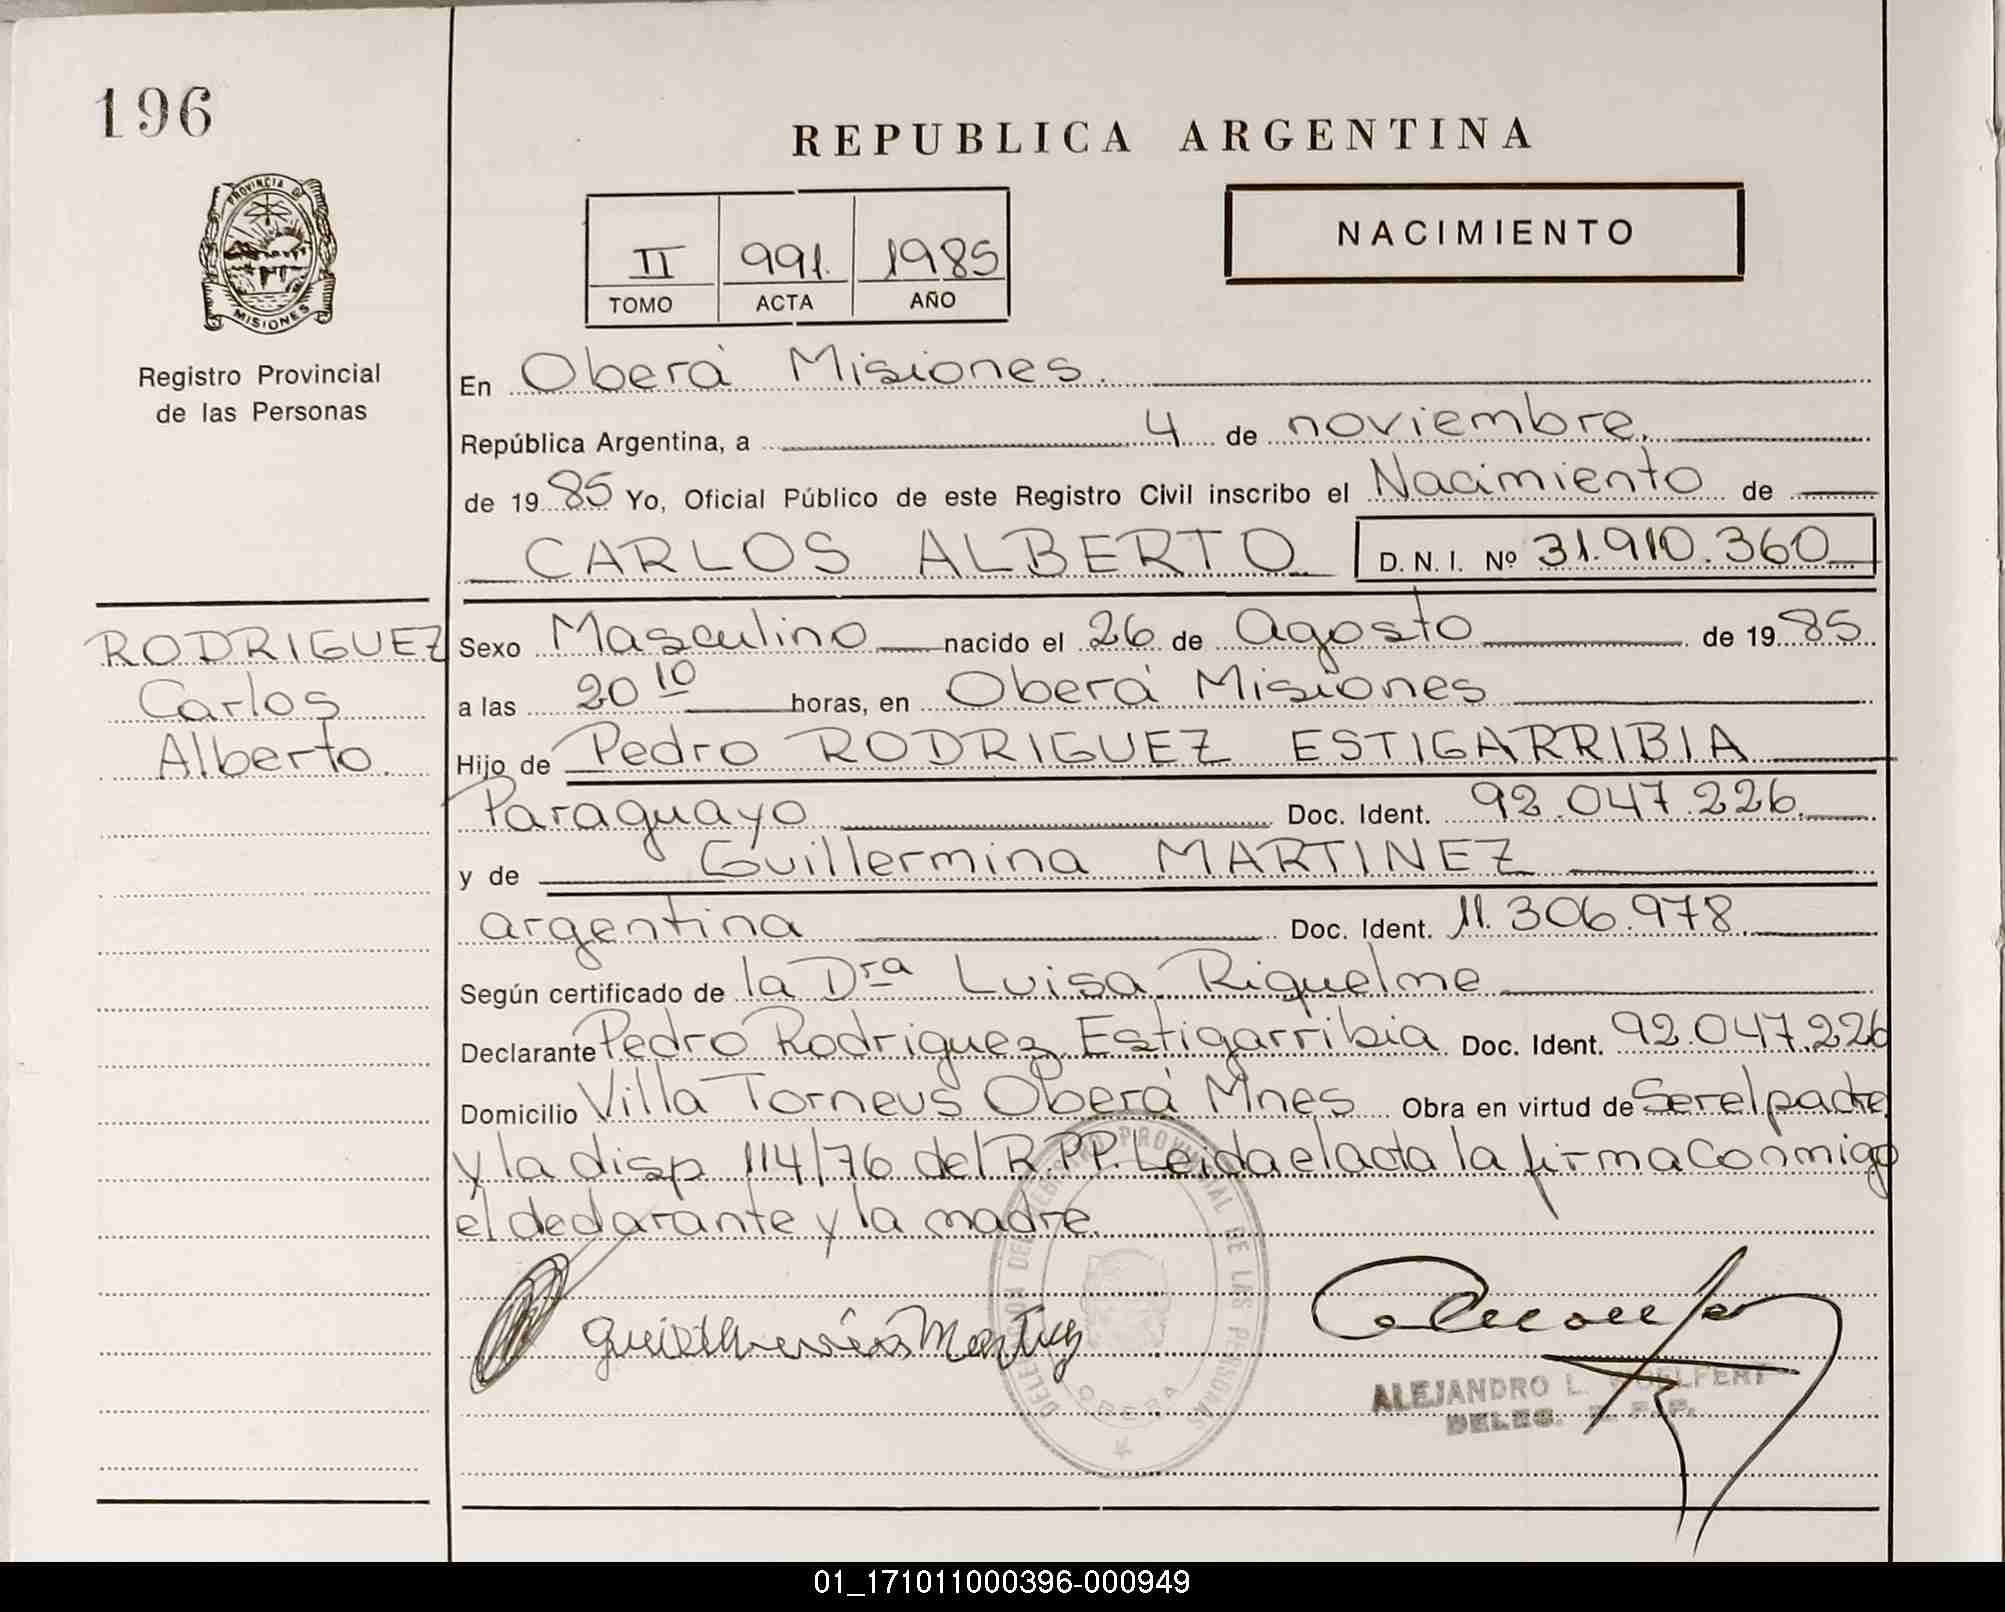 196
REPUBLICA ARGENTINA
PROVINCIA DE
MISIONES
Registro Provincial
de las Personas
II 991. 1985
TOMO ACTA AÑO
NACIMIENTO
En Oberá Misiones.
República Argentina, a 4 de noviembre,
de 1985 Yo, Oficial Público de este Registro Civil inscribo el Nacimiento de
CARLOS ALBERTO. D. N. I. Nº 31.910.360
RODRIGUEZ
Carlos
Alberto.
Sexo Masculino nacido el 26 de Agosto de 1985
a las 20 10 horas, en Oberá Misiones
Hijo de Pedro RODRIGUEZ ESTIGARRIBIA
Paraguayo Doc. Ident. 92.047.226.
y de Guillermina MARTINEZ
argentina Doc. Ident. 11.306.978.
Según certificado de la Dra Luisa Riquelme
Declarante Pedro Rodriguez Estigarribia Doc. Ident. 92.047.226
Domicilio Villa Torneus Oberá Mnes Obra en virtud de Ser el padre
y la disp. 114/76 del R.P.P. Leida el acta la firma Conmigo
el declarante y la madre.
DELEGACION DEL REGISTRO PROVINCIAL DE LAS PERSONAS
OBERA
ALEJANDRO L.
DELEG. R. P. P.
01_171011000396-000949